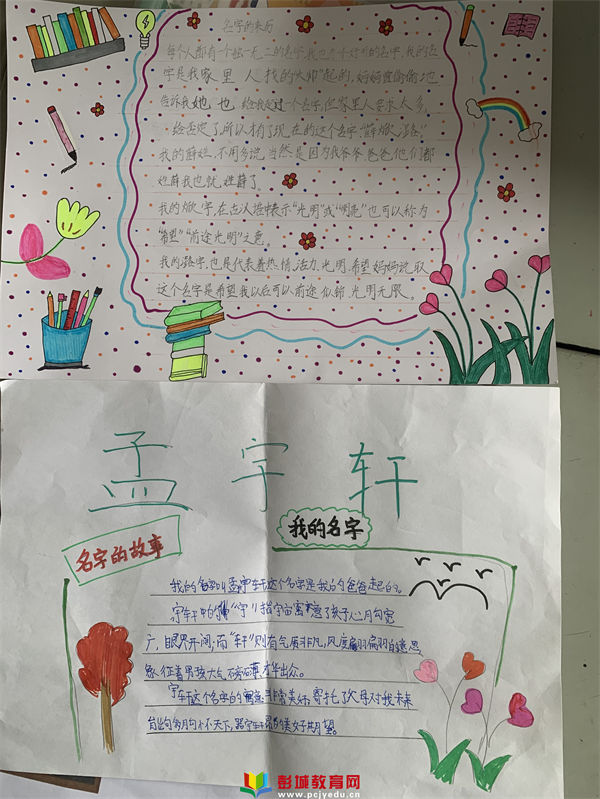 名字的来历
每个人都有一个独一无二的名字,我也有个好听的名字,我的名
字是我家里人找的"大师"起的,妈妈还偷偷地
告诉我她也给我起过一个名字,但家里人要求太多,
给否定了,所以才有了现在的这个名字"薛焮
我的薛姓,不用多说,当然是因为我爷爷、爸爸他们都
姓薛我也就姓薛了。
我的焮字,在古汉语中表示"光明"或"明亮"也可以称为
"希望""前途光明"之意。
我的 字,也是代表着热情、活力、光明、希望妈妈说取
这个名字是希望我以后可以前途似锦光明无限。
孟宇轩
我的名字
名字的故事
我的名字叫孟宇轩这个名字是我的爸爸起的。
宇轩中的"宇"指宇宙寓意了孩子心胸宽
广,眼界开阔;而"轩"则有气质非凡,风度翩翩的意思,
象征着男孩大气磅礴才华出众。
宇轩这个名字的寓意非常美好,寄托了父母对我未来
的美好期望。
彭城教育网
www.pcjyedu.cn